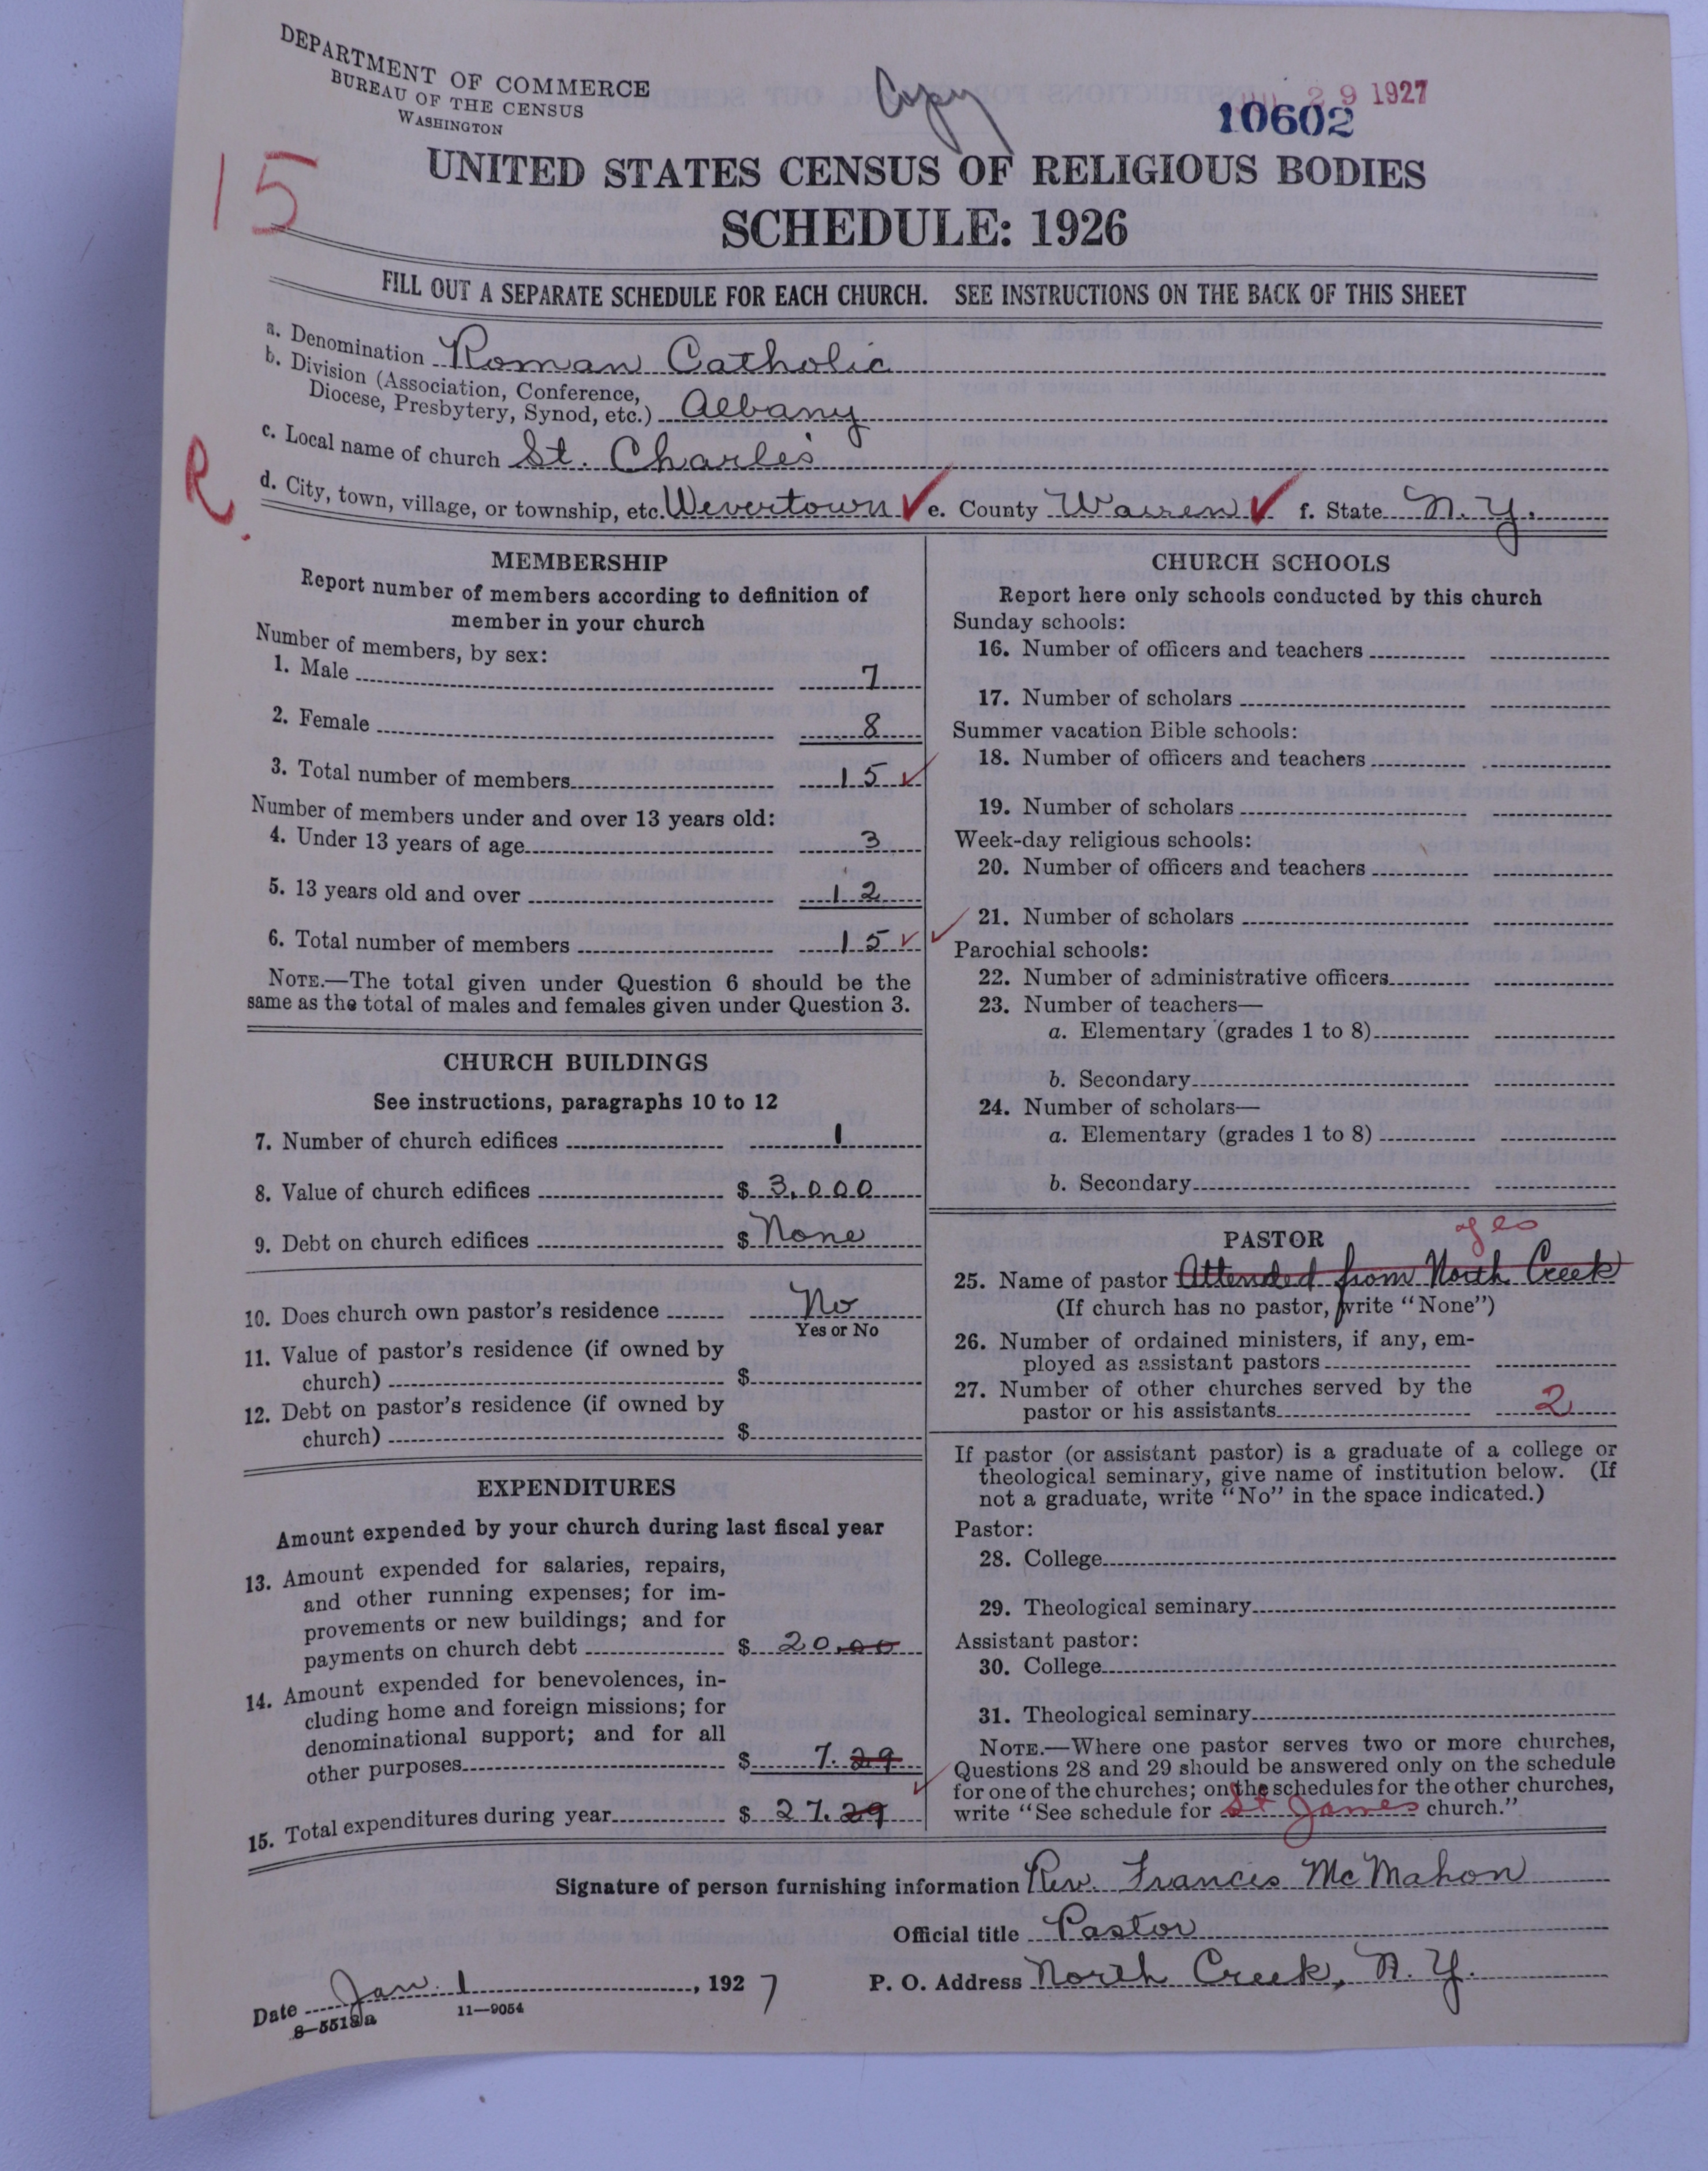 DEPARTMENT OF COMMERCE
BUREAU OF THE CENSUS
WASHINGTON
Copy
29 1927
10602
15
UNITED STATES CENSUS OF RELIGIOUS BODIES
SCHEDULE: 1926
FILL OUT A SEPARATE SCHEDULE FOR EACH CHURCH. SEE INSTRUCTIONS ON THE BACK OF THIS SHEET
a. Denomination Roman Catholic
b. Division (Association, Conference,
Diocese, Presbytery, Synod, etc.) Albany
c. Local name of church St. Charles
R.
d. City, town, village, or township, etc. Wevertown ✓ e. County Warren ✓ f. State N.Y.
MEMBERSHIP
Report number of members according to definition of
member in your church
Number of members, by sex:
1. Male 7
2. Female 8
3. Total number of members 15 ✓
Number of members under and over 13 years old:
4. Under 13 years of age 3
5. 13 years old and over 12
6. Total number of members 15 ✓ ✓
NOTE.—The total given under Question 6 should be the
same as the total of males and females given under Question 3.
CHURCH BUILDINGS
See instructions, paragraphs 10 to 12
7. Number of church edifices 1
8. Value of church edifices $ 3,000
9. Debt on church edifices $ None
10. Does church own pastor's residence No
Yes or No
11. Value of pastor's residence (if owned by
church) $
12. Debt on pastor's residence (if owned by
church) $
EXPENDITURES
Amount expended by your church during last fiscal year
13. Amount expended for salaries, repairs,
and other running expenses; for im-
provements or new buildings; and for
payments on church debt $ 20.00
14. Amount expended for benevolences, in-
cluding home and foreign missions; for
denominational support; and for all
other purposes $ 7.29
15. Total expenditures during year $ 27.29 ✓
CHURCH SCHOOLS
Report here only schools conducted by this church
Sunday schools:
16. Number of officers and teachers
17. Number of scholars
Summer vacation Bible schools:
18. Number of officers and teachers
19. Number of scholars
Week-day religious schools:
20. Number of officers and teachers
21. Number of scholars
Parochial schools:
22. Number of administrative officers
23. Number of teachers—
a. Elementary (grades 1 to 8)
b. Secondary
24. Number of scholars—
a. Elementary (grades 1 to 8)
b. Secondary
PASTOR yes
25. Name of pastor Attended from North Creek
(If church has no pastor, write "None")
26. Number of ordained ministers, if any, em-
ployed as assistant pastors
27. Number of other churches served by the
pastor or his assistants 2
If pastor (or assistant pastor) is a graduate of a college or
theological seminary, give name of institution below. (If
not a graduate, write "No" in the space indicated.)
Pastor:
28. College
29. Theological seminary
Assistant pastor:
30. College
31. Theological seminary
NOTE.—Where one pastor serves two or more churches,
Questions 28 and 29 should be answered only on the schedule
for one of the churches; on the schedules for the other churches,
write "See schedule for St James church."
Signature of person furnishing information Rev. Francis McMahon
Official title Pastor
Date Jan. 1, 1927 P. O. Address North Creek, N.Y.
8—5518a 11—9054